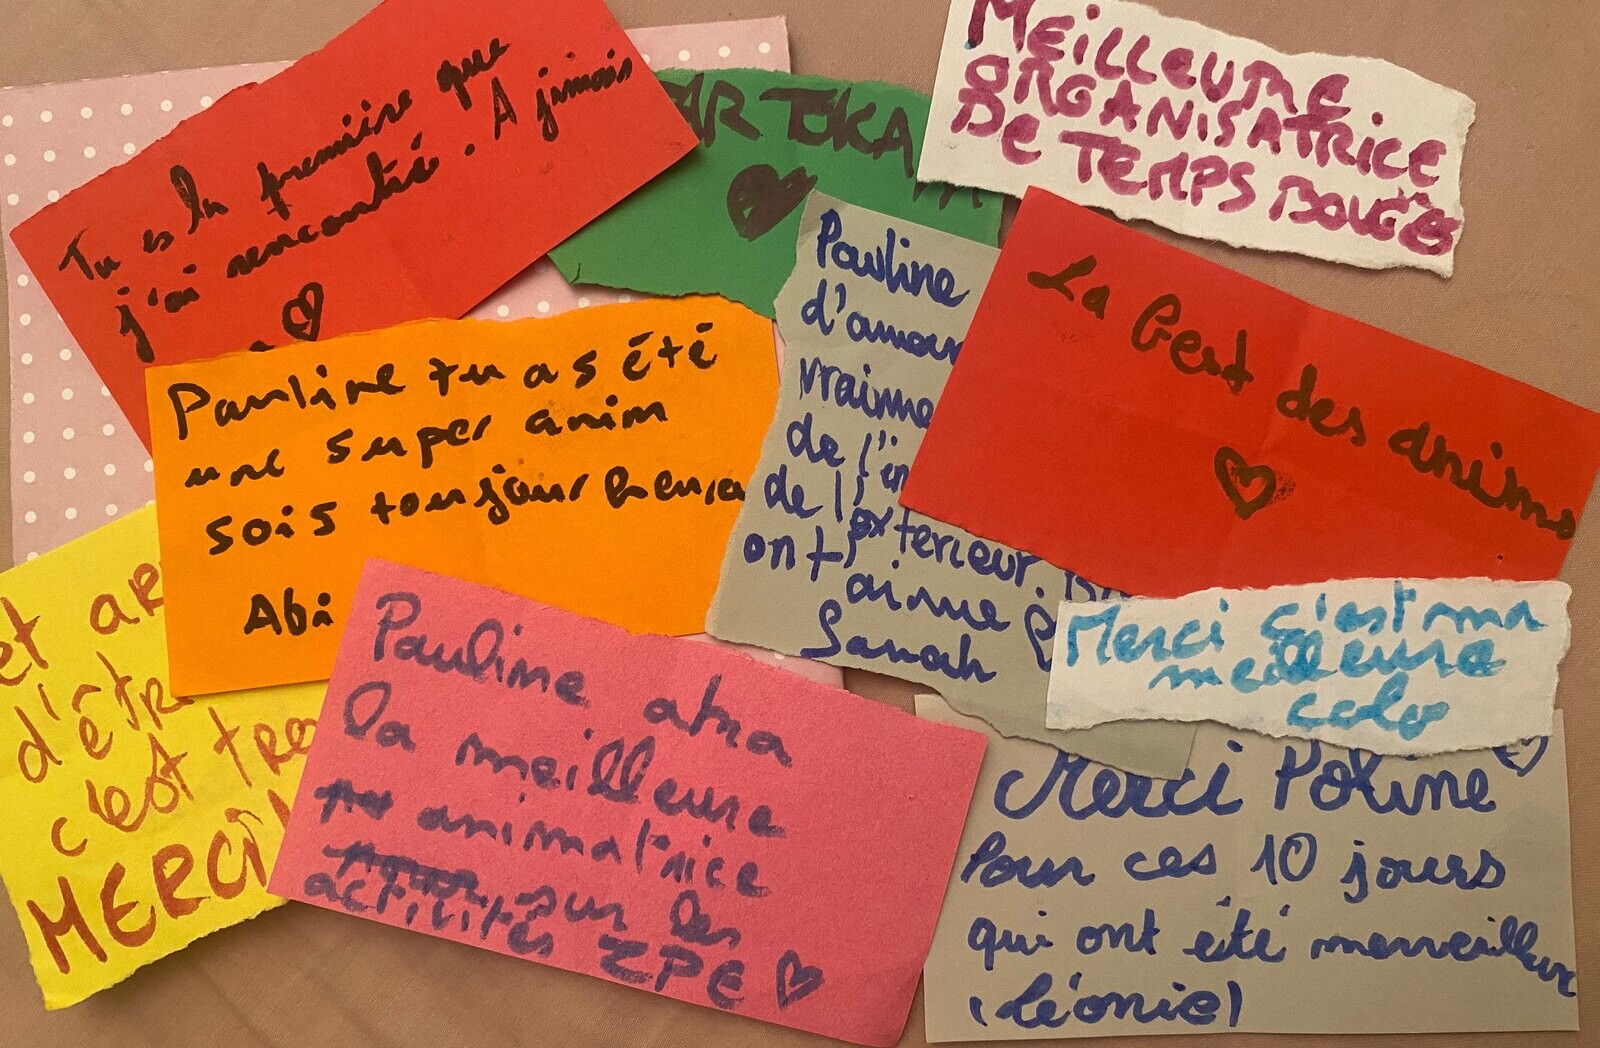 Tu es la première que
j'ai rencontré. A jimais
AR TOKA
MEILLEURE
ORGANISATRICE
DE TEMPS
Pauline
d'amour
vraime
de l'in
de l'exterieur.
ont aimé
Sarah
La Best des anims
Pauline tu as été
une super anim
sois toujour heureu
Abi
et ar
d'êtr
c'est tro
MERCI
Pauline atra
la meilleure
animatrice
sur les
activités ZPE
Merci c'est ma
meilleure
colo
Merci Poline
Pour ces 10 jours
qui ont été merveilleux
(Léonie)